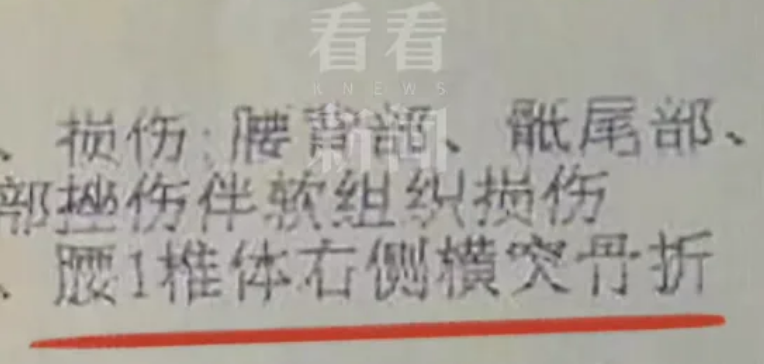 看看
KNEWS
新闻
、损伤:腰背部、骶尾部、
部挫伤伴软组织损伤
、腰1椎体右侧横突骨折